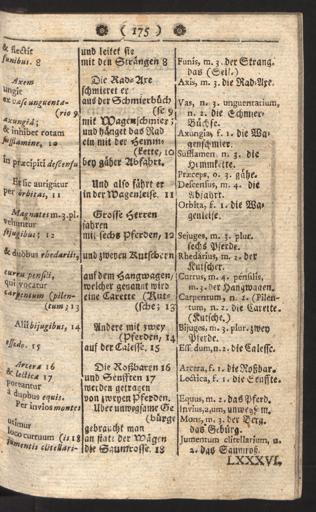 ( 175 )
& flectit
funibus. 8
Axem
ungit
ex vase unguenta-
(rio 9
axungiâ;
& inhibet rotam
sufflamine, 10
in præcipiti descensu
Et sic aurigatur
per orbitas, 11
Magnates m.3.pl.
vehuntur
sejugibus; 12
& duobus rhedariis,
curru pensili,
qui vocatur
carpentum (pilen-
(tum; 13
Alii bijugibus, 14
essedo. 15
Arcera 16
& lectica 17
portantur
à duobus equis.
Per invios montes
utimur
loco curruum (is 18
jumentis clitellari-
und leitet sie
mit den Strängen 8
Die Rad-Axe
schmieret er
aus der Schmierbüch
(se 9
mit Wagenschmier;
und hänget das Rad
ein mit der Hemm-
(Kette, 10
bey gäher Abfahrt.
Und also fährt er
in der Wagenleise. 11
Grosse Herren
fahren
mit sechs Pferden, 12
und zweyen Kutschern
auf dem Hangwagen,
welcher genannt wird
eine Carette (Kut-
(sche; 13
Andere mit zwey
(Pferden, 14
auf der Calesse. 15
Die Roßbaren 16
und Senfften 17
werden getragen
von zweyen Pferden.
Uber unwegsame Ge
(bürge
gebraucht man
an statt der Wägen
die Saumrosse. 18
Funis, m. 3. der Strang.
das (Seil.)
Axis, m. 3. die Rad-Axe.
Vas, n. 3. unguentarium,
n. 2. die Schmier-
Büchse.
Axungia, f. 1. die Wa-
genschmier.
Sufflamen n. 3. die
Hemmkette.
Præceps, o. 3. gähe.
Descensus, m. 4. die
Abfahrt.
Orbita, f. 1. die Wa-
genleise.
Sejuges, m. 3. plur.
sechs Pferde.
Rhedarius, m. 2. der
Kutscher.
Currus, m. 4. pensilis,
m. 3. der Hangwagen.
Carpentum, n. 2. (Pilen-
tum, n. 2. die Carette.
(Kutsche.)
Bijuges, m. 3. plur. zwey
Pferde.
Essedum, n. 2. die Calesse.
Arcera, f. 1. die Roßbar.
Lectica, f. 1. die Senffte.
Equus, m. 2. das Pferd.
Invius, 2, um, unwegsam.
Mons, m. 3. der Berg.
das Gebürg.
Jumentum clitellarium, n.
2. das Saumroß.
LXXXVI.